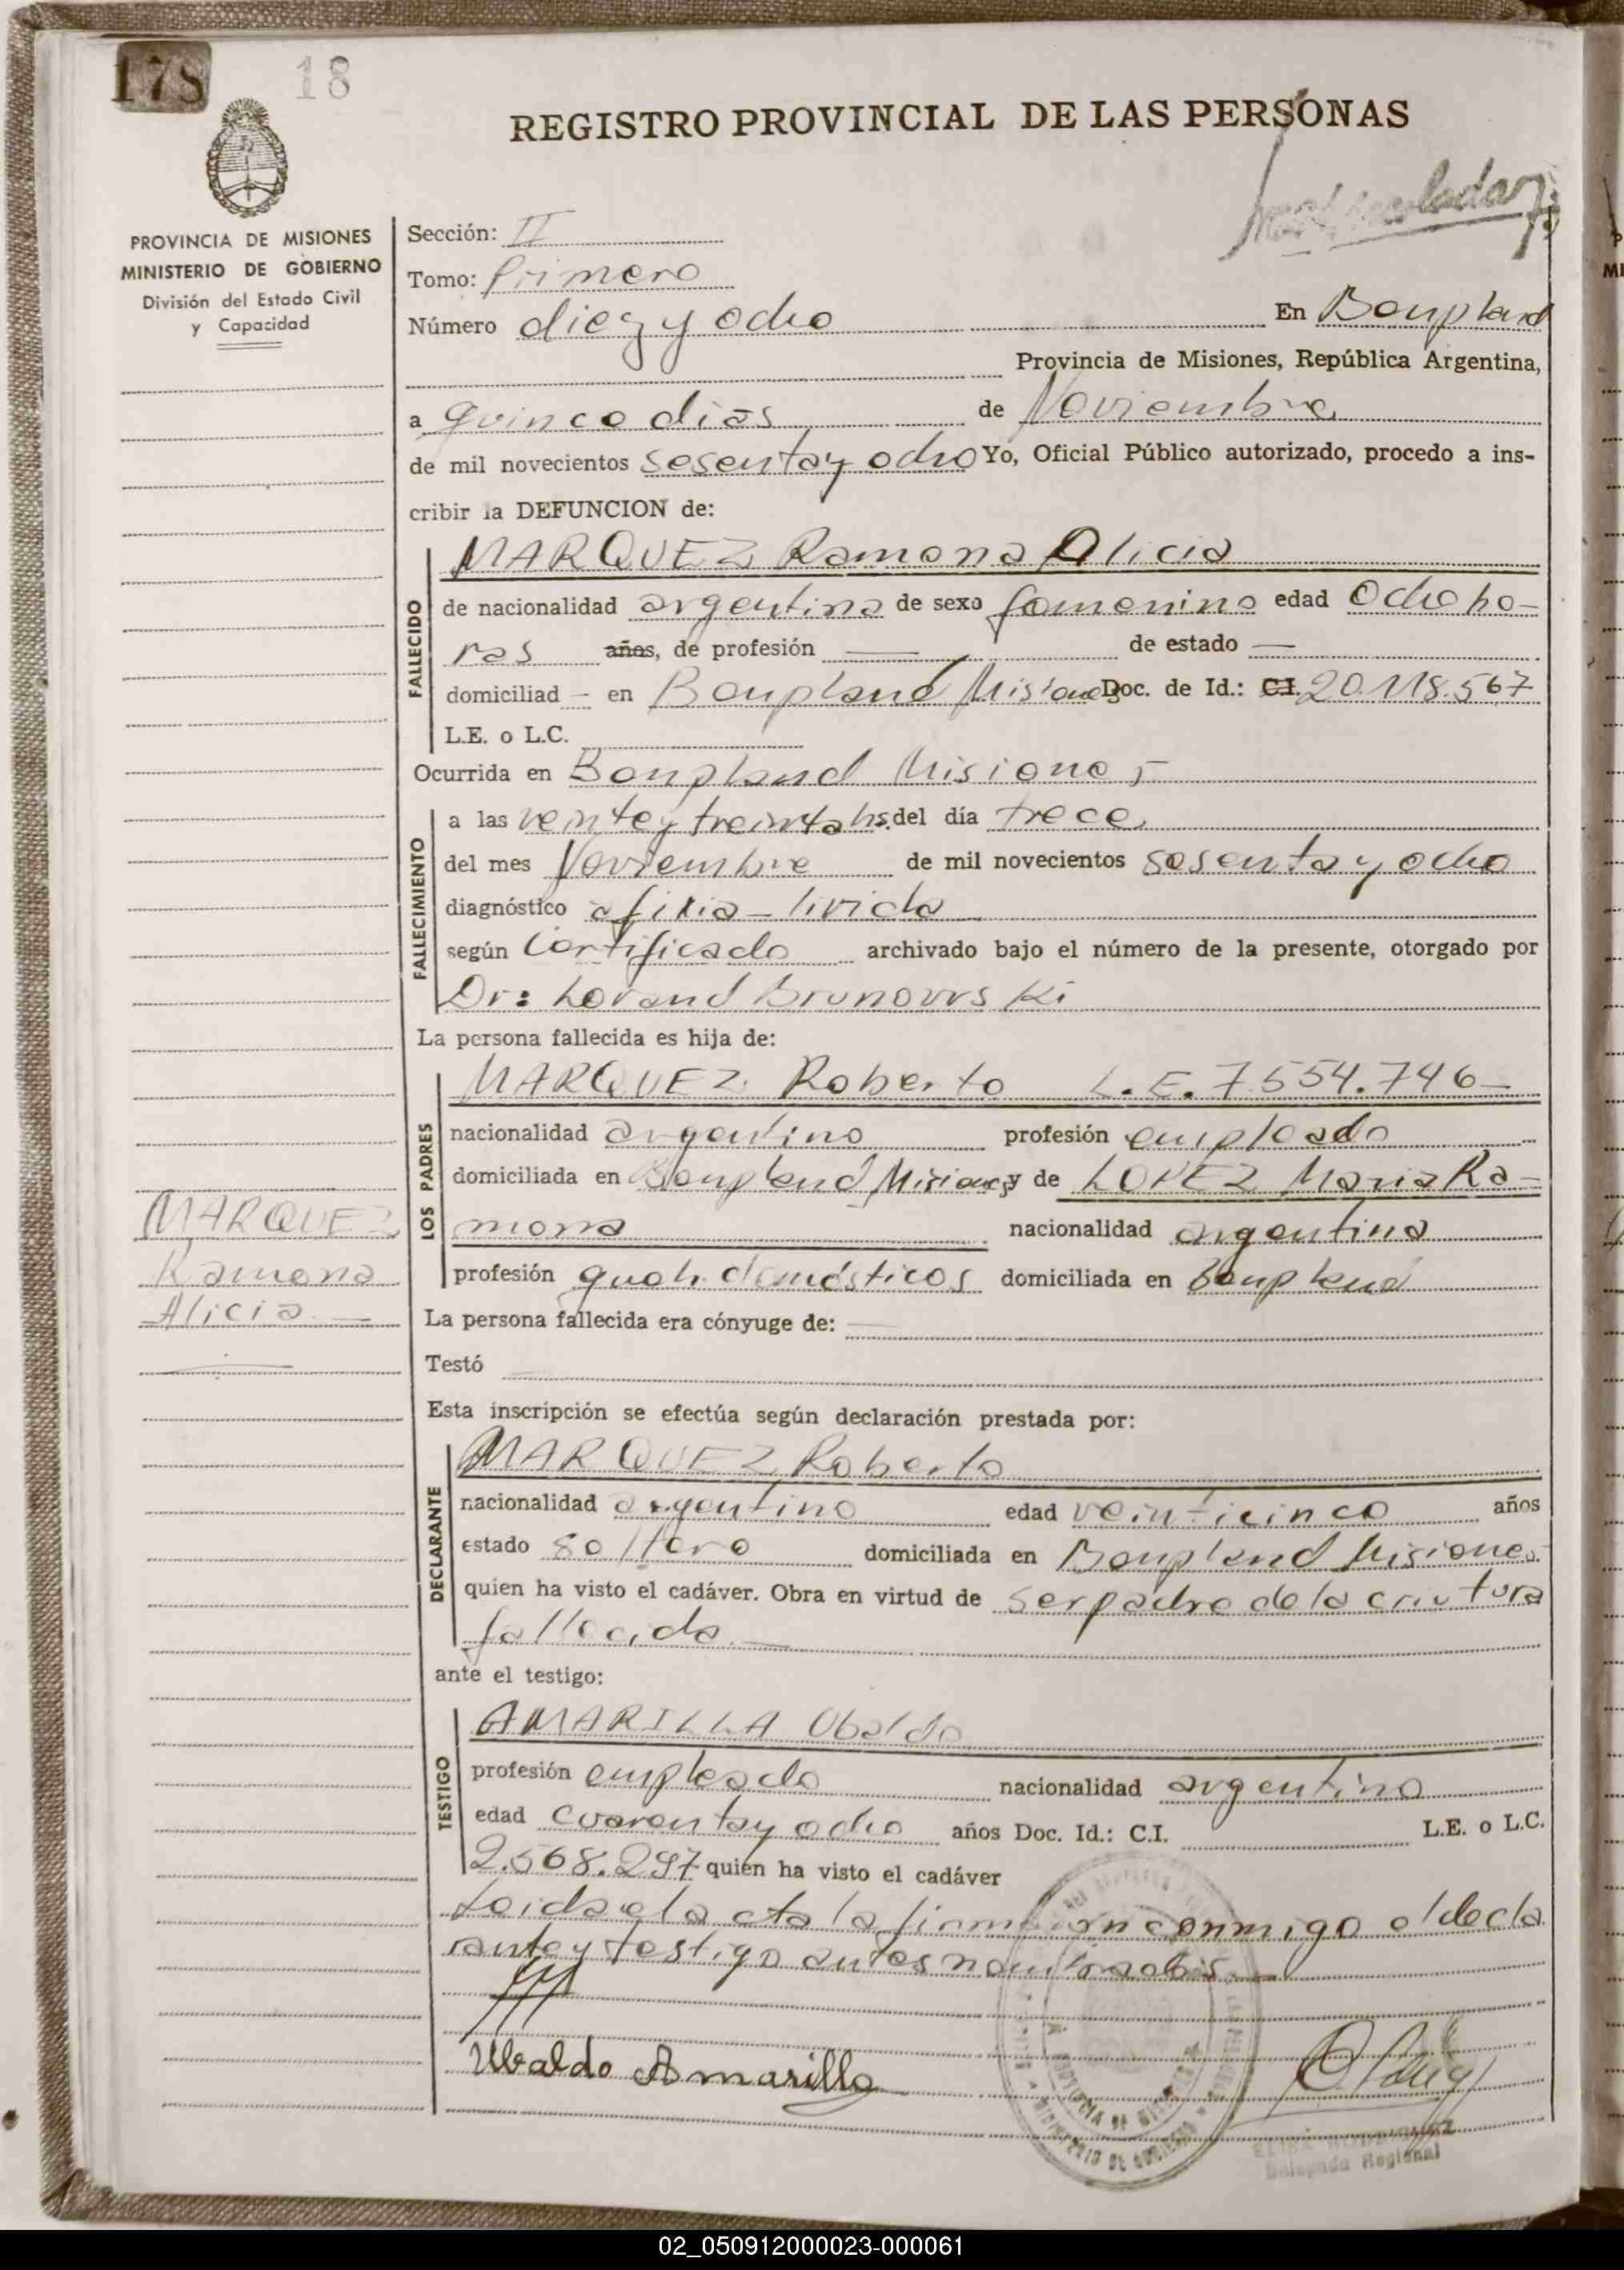 178 18
REGISTRO PROVINCIAL DE LAS PERSONAS
PROVINCIA DE MISIONES
MINISTERIO DE GOBIERNO
División del Estado Civil
y Capacidad
Sección: II
Tomo: Primero
Número diez y ocho En Bonpland
Provincia de Misiones, República Argentina,
a quince dias de Noviembre
de mil novecientos sesenta y ocho Yo, Oficial Público autorizado, procedo a ins-
cribir la DEFUNCION de:
FALLECIDO
MARQUEZ Ramona Alicia
de nacionalidad argentina de sexo femenino edad Ocho ho-
ras años, de profesión — de estado —
domiciliad - en Bonpland Misiones Doc. de Id.: C.I. 20.118.567
L.E. o L.C.
Ocurrida en Bonpland Misiones-
FALLECIMIENTO
a las veinte y treinta hs. del día trece
del mes Noviembre de mil novecientos sesenta y ocho
diagnóstico afixia - livida
según Certificado archivado bajo el número de la presente, otorgado por
Dr: Lorand Brunowski
La persona fallecida es hija de:
LOS PADRES
MARQUEZ Roberto L.E. 7.554.746-
nacionalidad argentino profesión empleado
domiciliada en Bonpland Misiones y de LOPEZ Maria Ra-
mona nacionalidad argentina
profesión queh. domésticos domiciliada en Bonpland
MARQUEZ
Ramona
Alicia.—
La persona fallecida era cónyuge de: —
Testó —
Esta inscripción se efectúa según declaración prestada por:
DECLARANTE
MARQUEZ Roberto
nacionalidad argentino edad veinticinco años
estado soltero domiciliada en Bonpland Misiones
quien ha visto el cadáver. Obra en virtud de ser padre de la criatura
fallecida.—
ante el testigo:
TESTIGO
AMARILLA Ubaldo
profesión empleado nacionalidad argentino
edad cuarenta y ocho años Doc. Id.: C.I. L.E. o L.C.
2.568.297 quien ha visto el cadáver
Leida el acta la firman conmigo el decla
rante y testigo antes nombrados.—
Ubaldo Amarilla
PROVINCIA DE MISIONES
MINISTERIO DE GOBIERNO
ELISA RODRIGUEZ
Delegada Regional
02_050912000023-000061